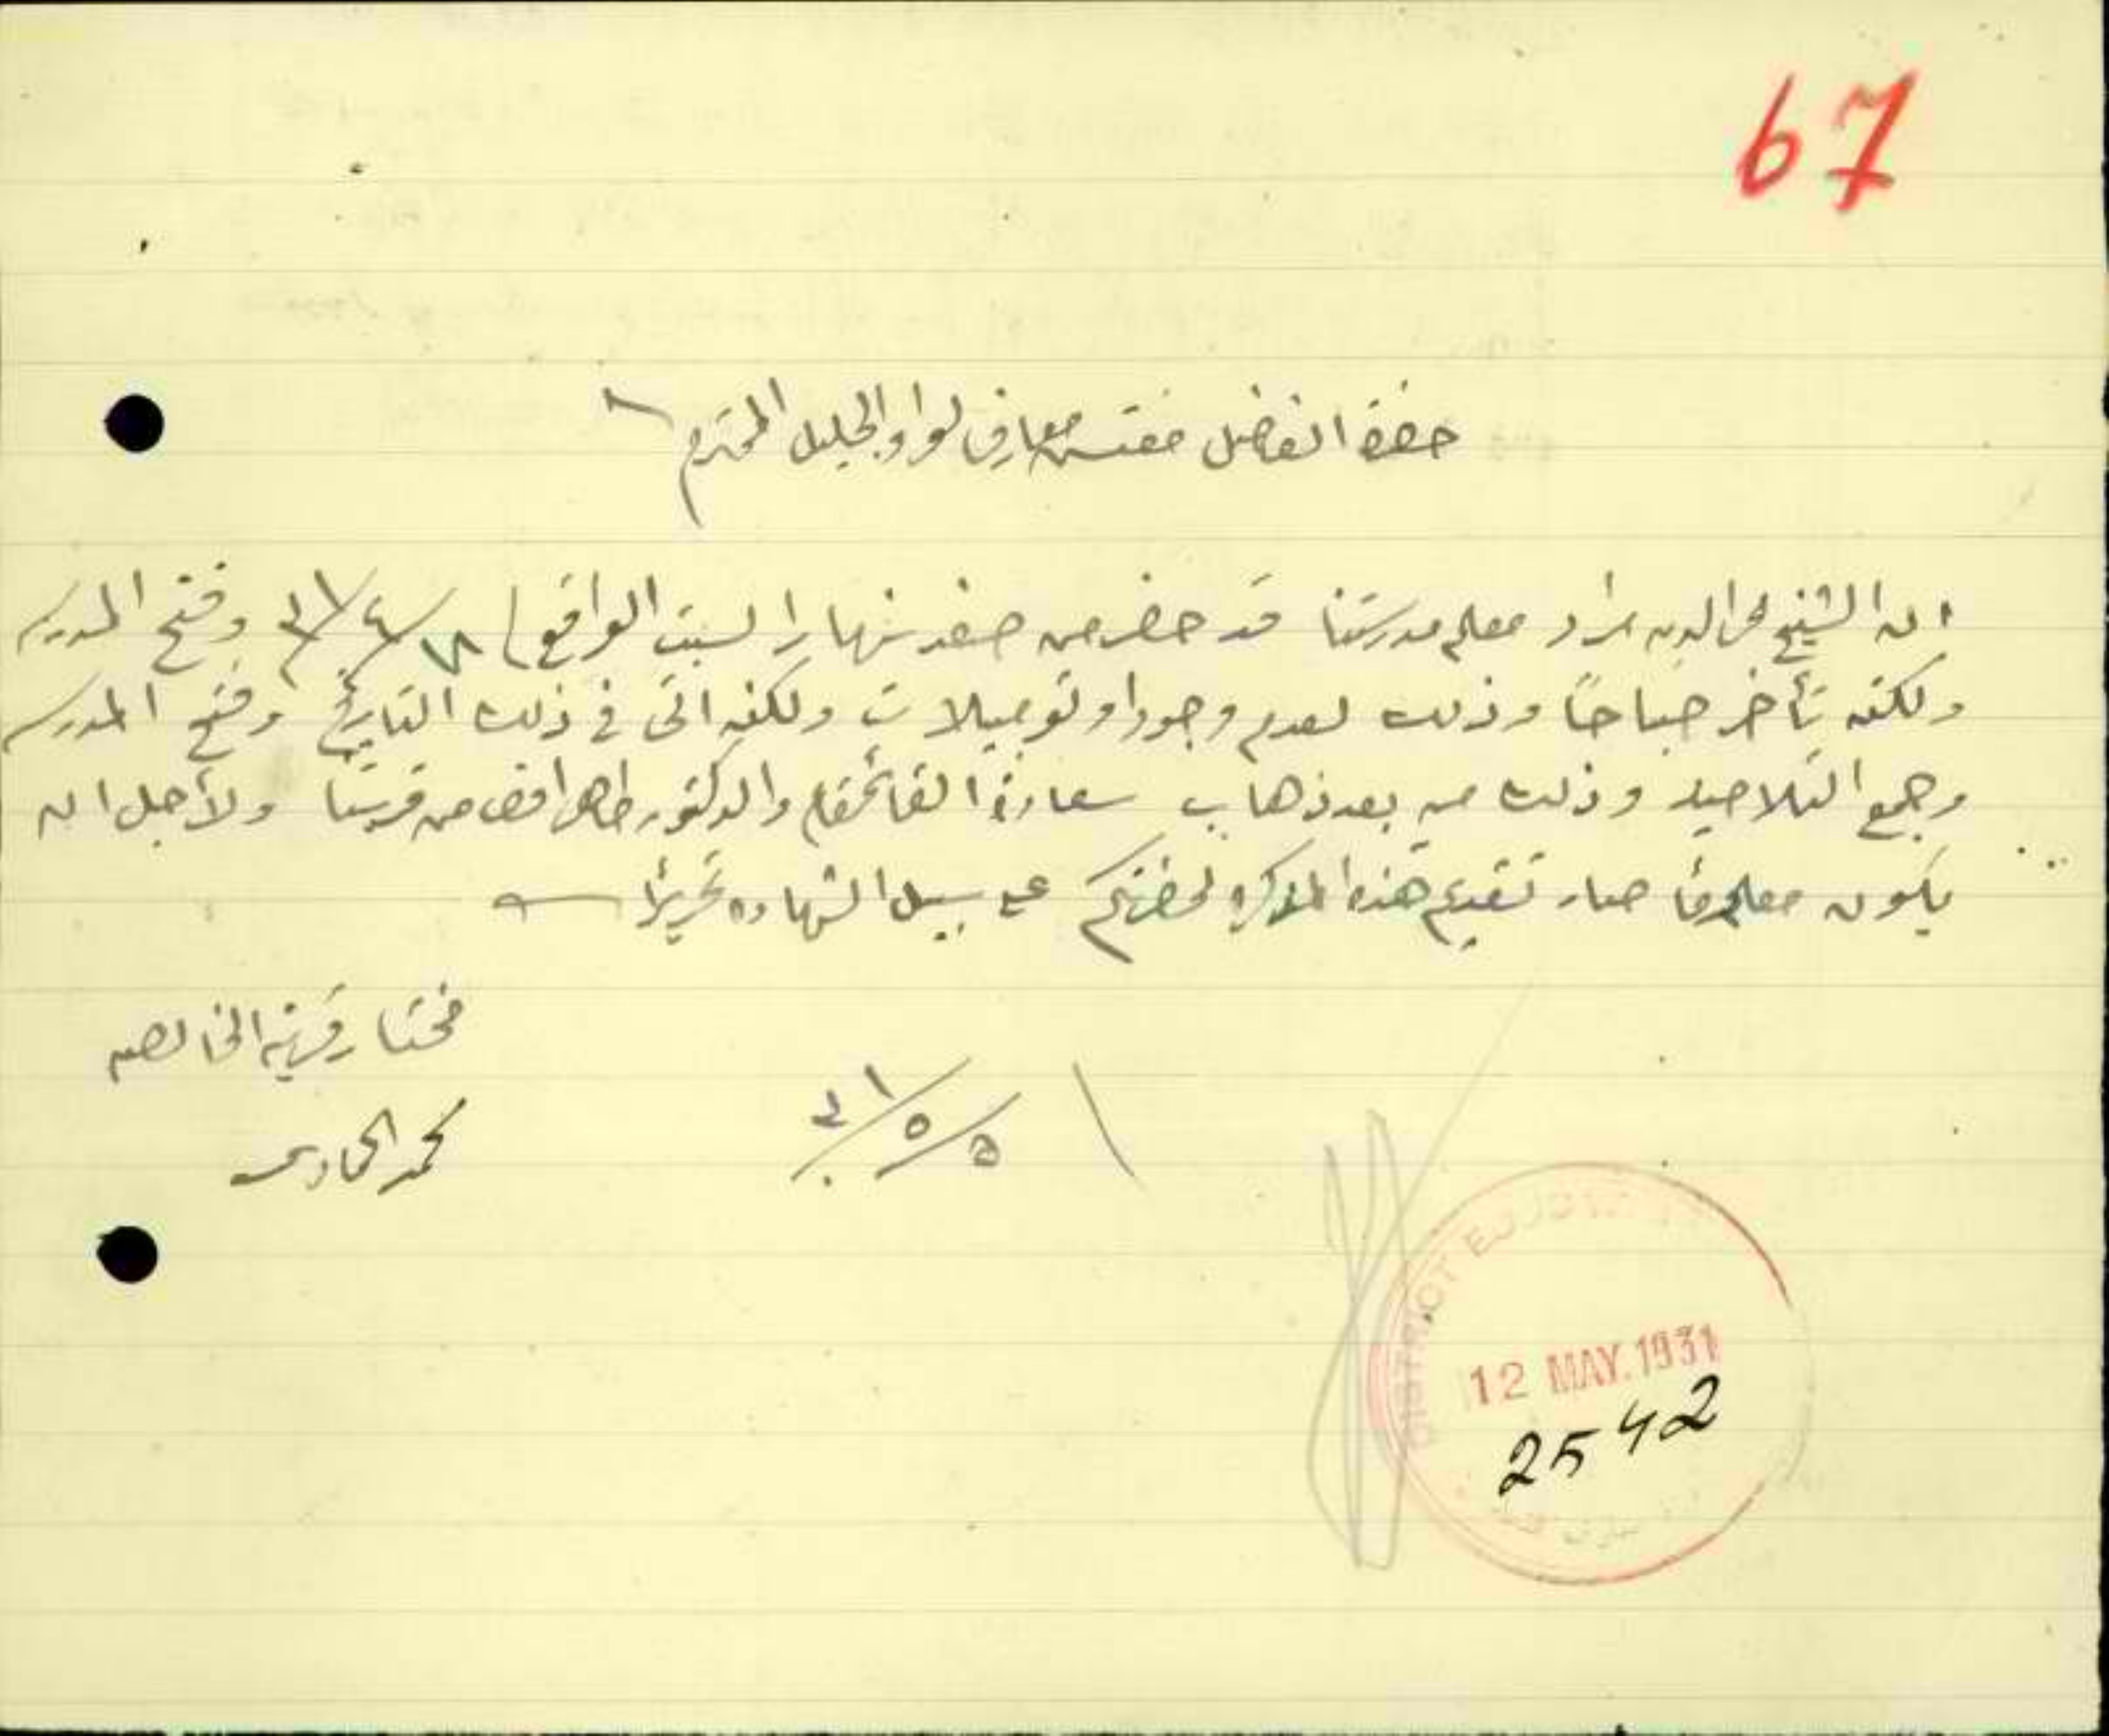 67
حضرة الفاضل مفتش معارف لواء الجليل المحترم
ان الشيخ محي الدين مراد معلم مدرستنا قد حضر من صفد نهار السبت الواقع ٣١/٤/١٨ وفتح المدرسه
ولكنه تأخر صباحاً وذلك لعدم وجود اوتومبيلات ولكنه اتى في ذلك التاريخ وفتح المدرسه
وجمع التلاميذ وذلك من بعد ذهاب سعادة القائمقام والدكتور طاهر افندي من قريتنا ولأجل ان
يكون معلوماً صار تقديم هذه المذكره لحضرتكم على سبيل الشهاده تحريراً
مختار قرية الخالصه
٣١/٥/٥
محمد
DISTRICT
12 MAY.1931
2542